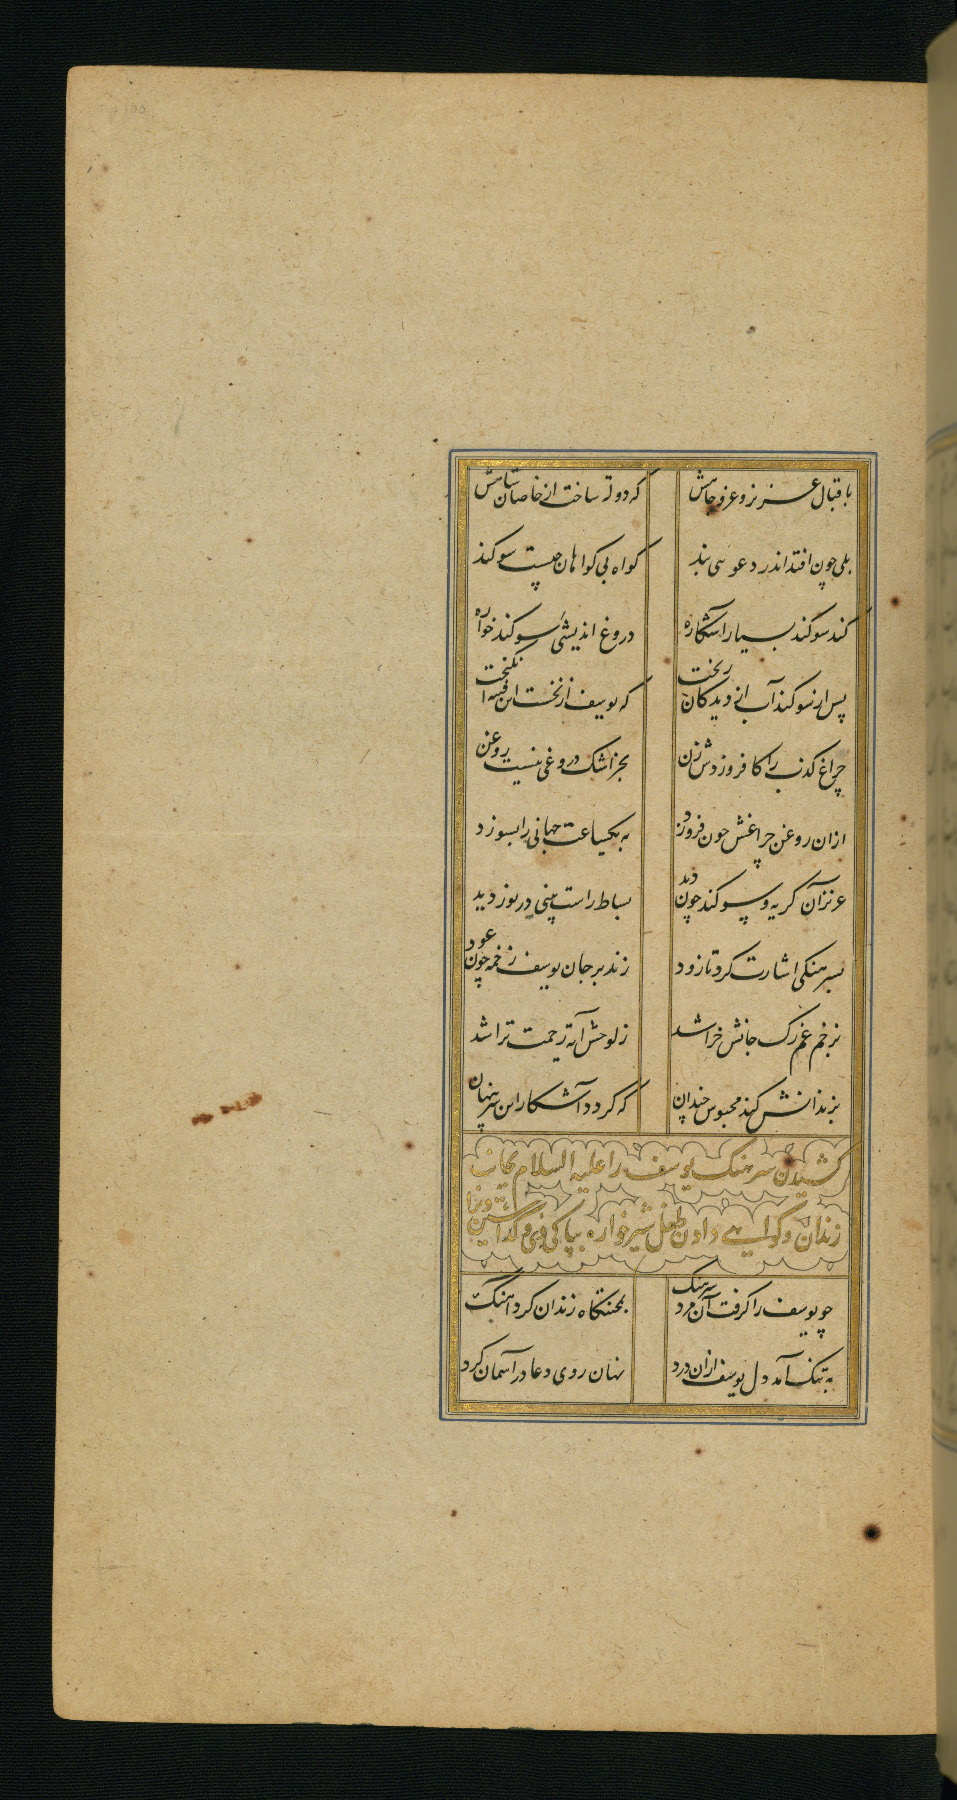 باقبال عزیز و عز و جاهش که دولت ساخت از خاصان شاهش
بلی چون افتد اندر دعوی بند کواه بی کواهان چیست سوکند
کند سوکند بسیار اشکاره دروغ اندیشیٔ سوکند خواره
پس از سوکند آب از دیدکان ریخت که یوسف از نخست این فتنه انکیخت
چراغ کذب را کافروزدش زن بجز اشک دروغی نیست روغن
ازان روغن چراغش چون فروزد به یکساعت جهانی را بسوزد
عزیز آن کریه و سوکند چون دید بساط راست بینی در نوردید
بسرهنکی اشارت کرد تا زود زند بر جان یوسف زخمه چون عود
بزخم غم رک جانش خراشد ز لوحش آیة رحمت تراشد
بزندانش کند محبوس چندان که کردد آشکار این سر پنهان
کشیدن سرهنک یوسف را علیه السلام بجانب
زندان و کواهی دادن طفل شیرخواره بپاکی وی و کذاشتن ویرا
چو یوسف را کرفت آن مرد سرهنک بمحنتکاه زندان کرد آهنک
به تنک آمد دل یوسف ازان درد نهان روی دعا در آسمان کرد